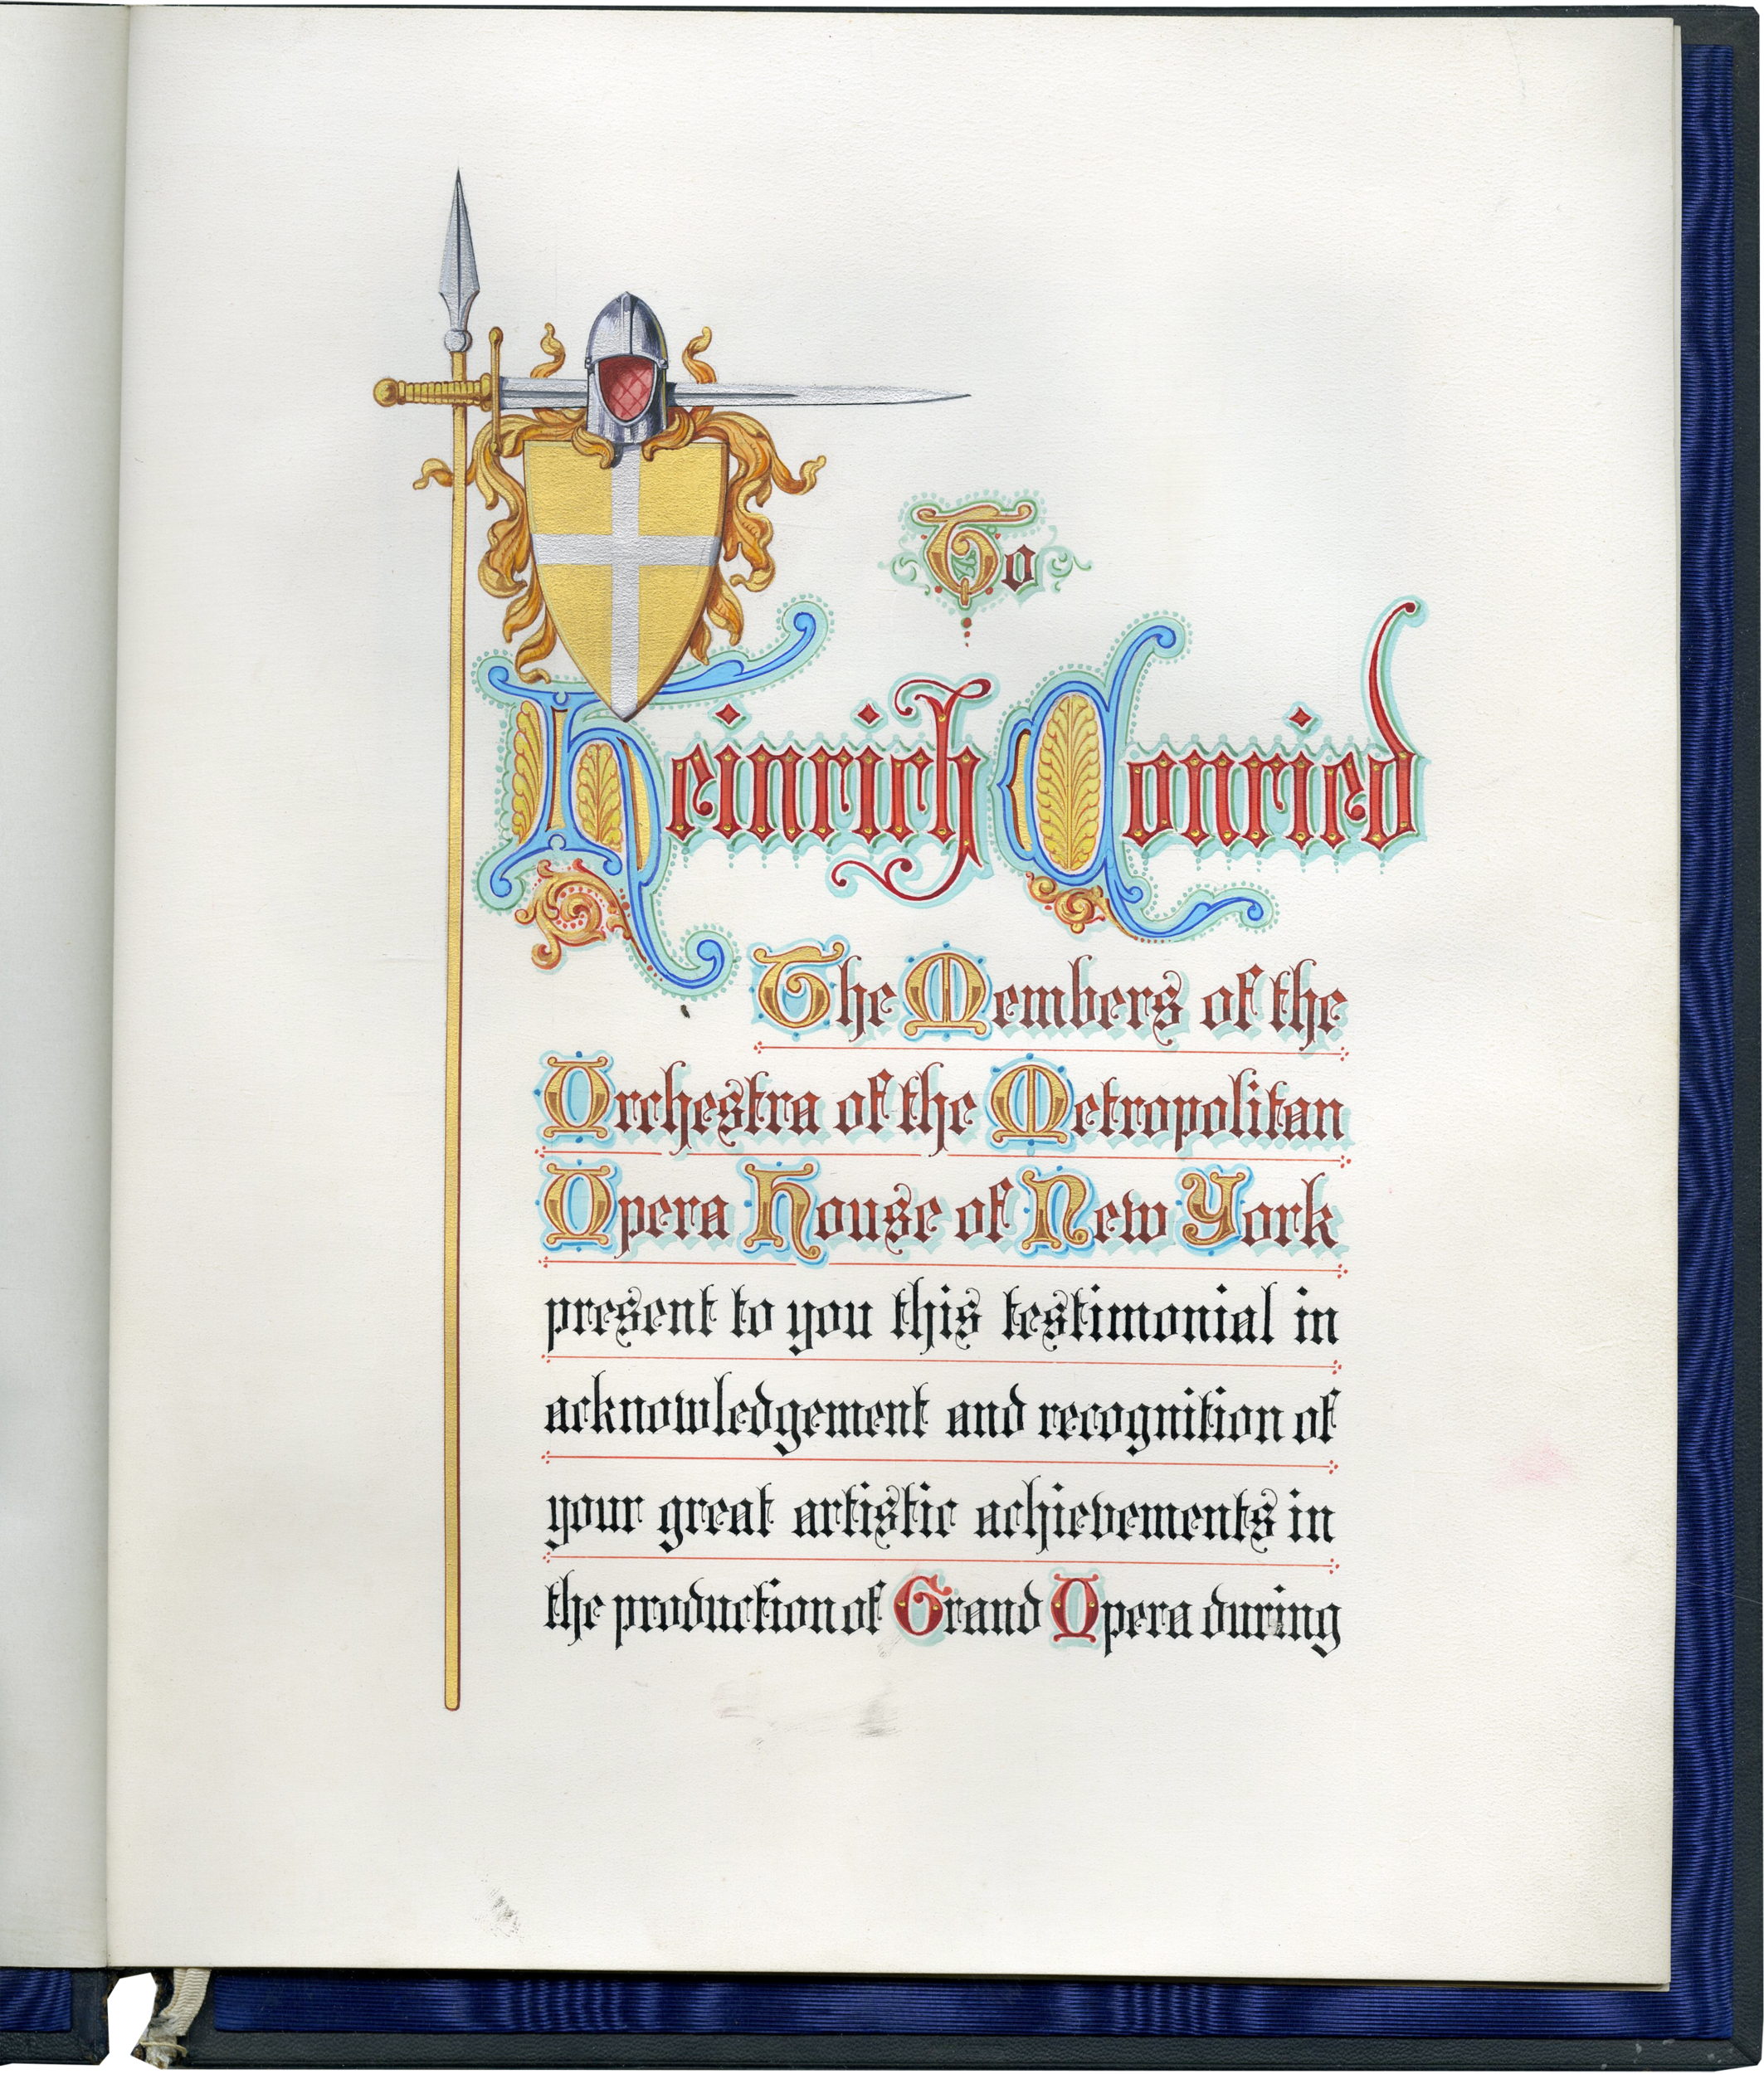 To
Heinrich Conried
The Members of the
Orchestra of the Metropolitan
Opera House of New York
present to you this testimonial in
acknowledgement and recognition of
your great artistic achievements in
the production of Grand Opera during